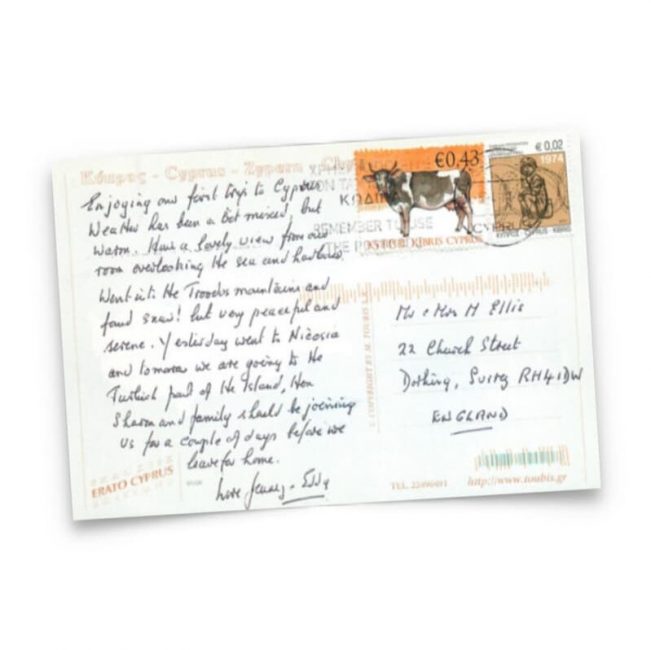 Κύπρος - Cyprus - Zypern -
€0,43
€ 0,02
1974
REMEMBER TO USE
THE
KIBRIS CYPRUS
CYPRUS
Enjoying our first trip to Cyprus
Weather has been a bit mixed, but
warm. Have a lovely view from our
room overlooking the sea and harbour
Went into the Troodos mountains and
found snow! but very peaceful and
serene. Yesterday went to Nicosia
and tomorrow we are going to the
Turkish part of the Island, then
Sharon and family should be joining
us for a couple of days before we
leave for home.
Love
Mr & Mrs M Ellis
22 Church Street
Dorking, Surrey RH4 1DW
ENGLAND
© COPYRIGHT BY M. TOUBIS S.A.
ERATO CYPRUS
TEL. 22490491
http://www.toubis.gr